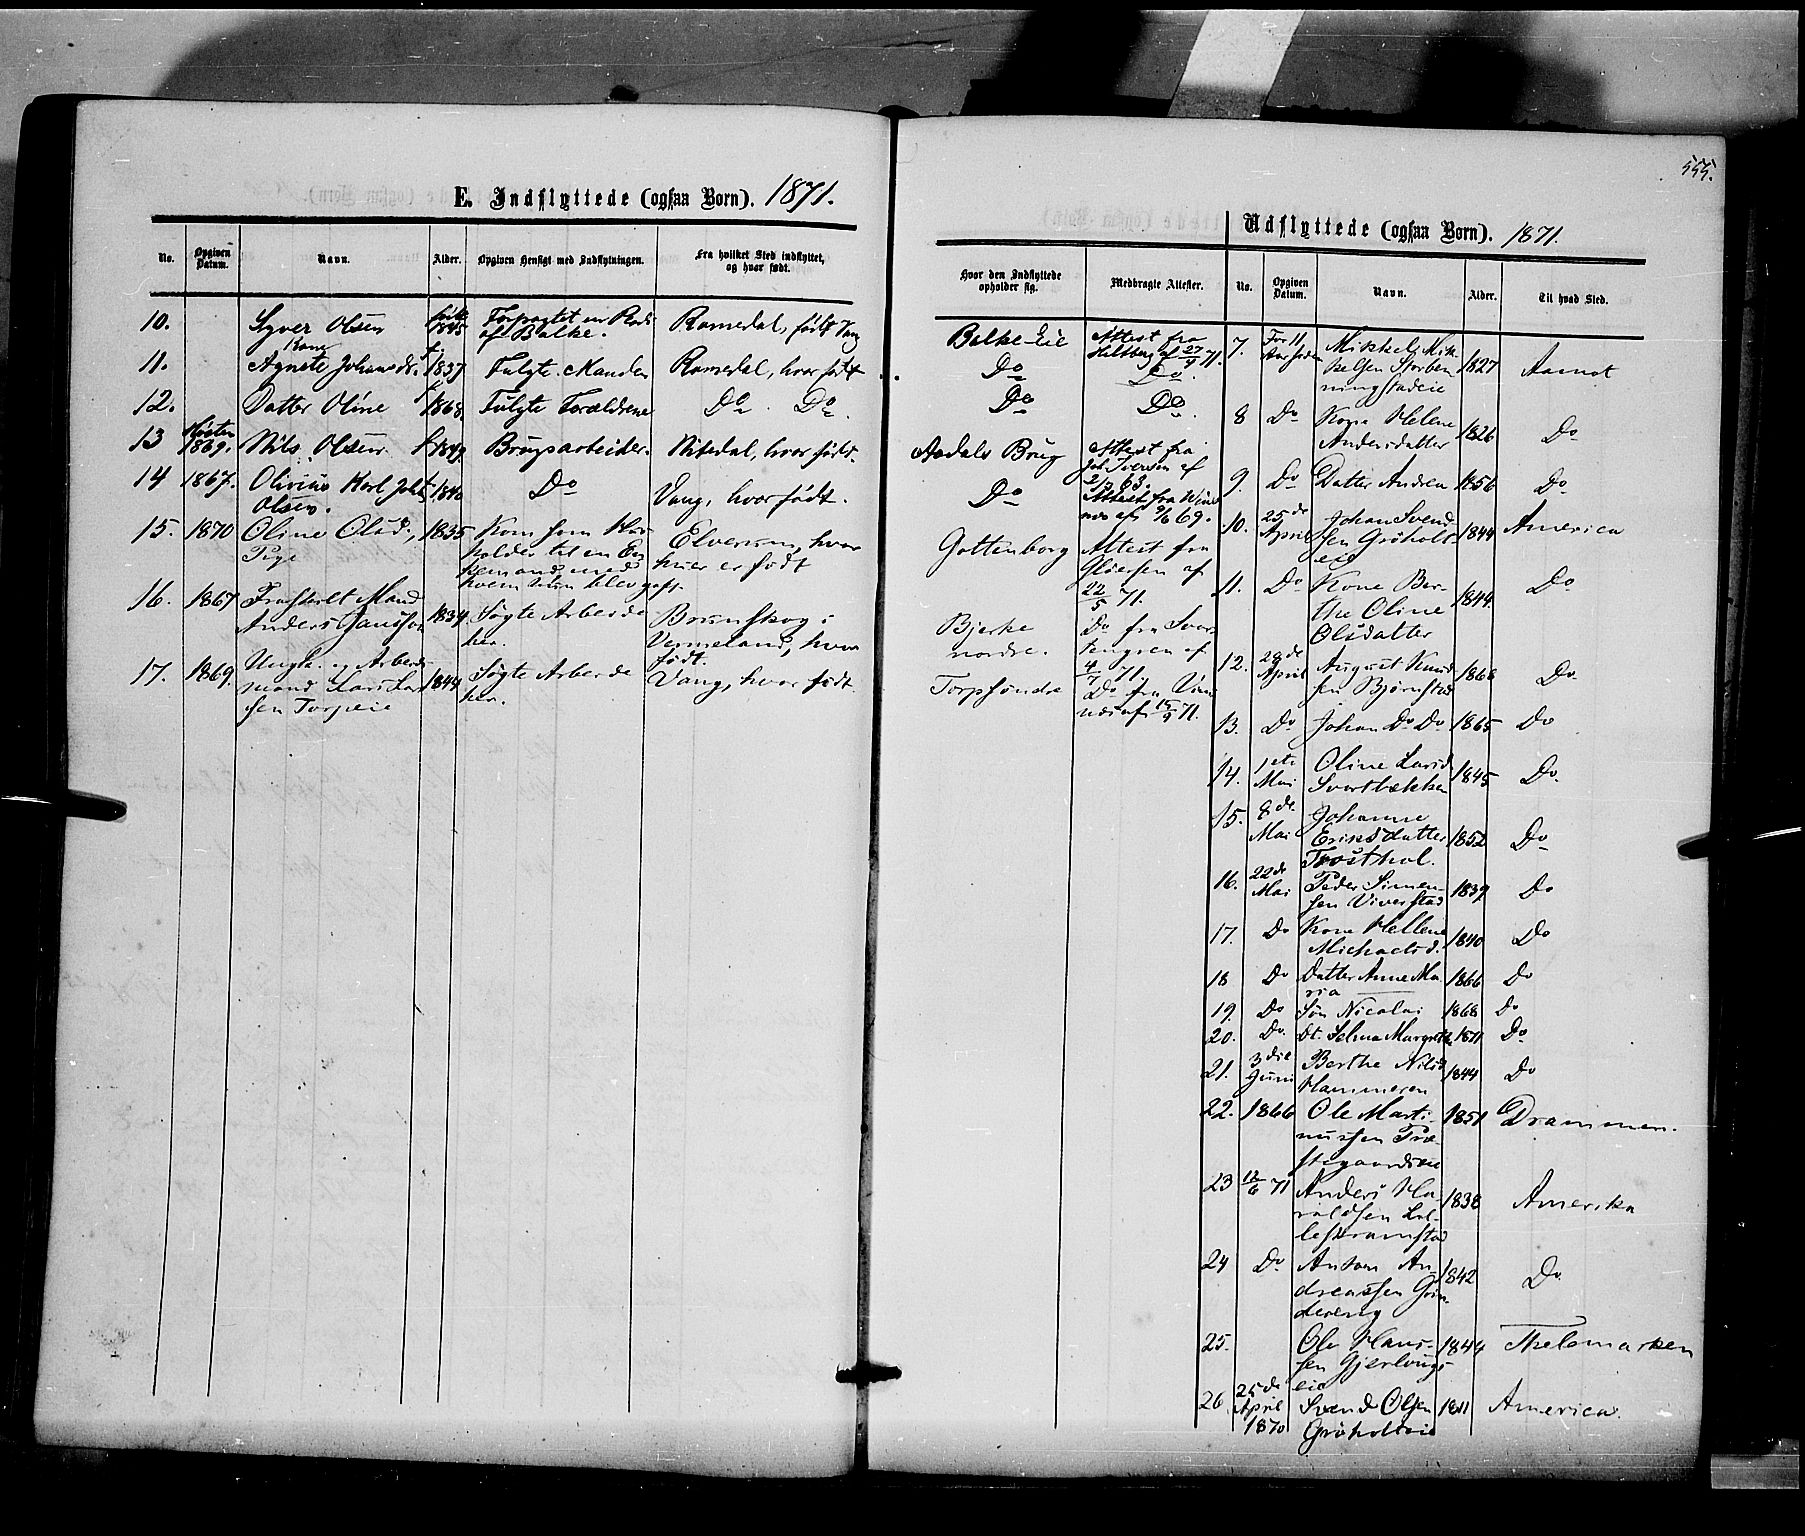 555.
E. Indflyttede (ogsaa Børn). 1871.
No.
Opgiven Datum.
Navn.
Alder.
Opgiven Hensigt med Indflytningen.
Fra hvilket Sted indflyttet, og hvor født.
Hvor den Indflyttede opholder sig.
Medbragte Attester.
10. Syver Olsen 1845 Forpagtet en Plads Romedal, født Vang Balke-Eie Attest fra
af Balke. 27/9 71.
Kone
11. Agnete Johansd. 1837 Fulgte Manden Romedal, hvor født Do Do.
12. Datter Oline 1868 Fulgte Forældrene Do Do. Do Do.
13 Høsten
1869. Nils Olsen 1849 Brugsarbeider. Nitedal, hvor født. Aadals Brug Attest fra
Joh. Iversen af
63.
14 1867. Olivius Karl Joh. 1840 Do Vang, hvor født. Do Attest fra
Olsen. 69.
15. 1870 Oline Olsd., 1835 Kom som Hus- Elverum, hvor Gottenborg Attest fra
Pige holder til en En- hun er født Gløersen af
kemand, med 22/5 71.
hvem hun blev gift.
16. 1867 Fraskilt Mand 1834 Søgte Arbeide Brunskog i Bjerke Do fra
Anders Jansson her. Vermeland, hvor nordre. af
født. 4/7 71.
17. 1869. Ungk. og Arbeids- 1844 Søgte Arbeide Vang, hvor født Torp søndre Do fra
mand Lars Lar- her. af 15/9 71.
sen Torpeie
Udflyttede (ogsaa Børn). 1871.
No.
Opgiven Datum.
Navn.
Alder.
Til hvad Sted.
7. For 11 Mikkel Mik- 1827 Aamot
Aar siden kelsen Storben-
ningstadeie
8 Do Kone Helene 1826 Do
Andersdatter
9. Do Datter Andrea 1856 Do
10. 25de Johan Svend- 1844 America
April sen Grøholt-
eie
11. Do Kone Ber- 1844. Do
the Oline
Olsdatter
12. 28de August Knud- 1868 Do.
April sen Bjørnstad
13. Do Johan Do Do 1865 Do
14. 1ste Oline Larsd. 1845 Do.
Mai Svartbækken
15. 8de Johanne
Mai Eriksdatter 1852 Do
Frosthol.
16. 22de Peder Simen- 1839 Do
Mai sen Viverstad
17. Do Kone Hellene 1840 Do
Michaelsd.
18 Do Datter Anne Ma- 1866 Do
ria
19. Do Søn Nicolai 1868 Do
20. Do. Dt. Selma Margrethe 1871 Do
21. 3die Berthe Nilsd. 1844 Do
Juni Hammeren
22. 1866 Ole Marti- 1851 Drammen.
nussen Præ-
stegaardseie
23 12/6 71 Anders Ha- 1838 Amerika
raldsen Lil-
leskramstad
24 Do Anton An- 1842 Do.
dreassen Grin-
dereng
25. Ole Hans- 1844 Thelemarken
sen Gjerlungs-
eie
26 25de Svend Olsen 1811 America.
April Grøholteie
1870